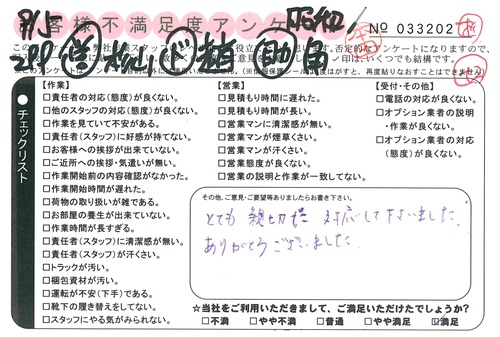 お客様不満足度アンケ
NO 033202
【作業】
□責任者の対応(態度)が良くない。
□他のスタッフの対応(態度)が良くない。
□作業を見ていて不安がある。
□責任者(スタッフ)に好感が持てない。
□お客様への挨拶が出来ていない。
□ご近所への挨拶・気遣いが無い。
□作業開始前の内容確認がなかった。
□作業開始時間が遅れた。
□荷物の取り扱いが雑である。
□お部屋の養生が出来ていない。
□作業時間が長すぎる。
□責任者(スタッフ)に清潔感が無い。
□責任者(スタッフ)が汗くさい。
□トラックが汚い。
□梱包資材が汚い。
□運転が不安(下手)である。
□靴下の履き替えをしてない。
□スタッフにやる気がみられない。
【営業】
□見積もり時間に遅れた。
□見積もり時間が長い。
□営業マンに清潔感が無い。
□営業マンが煙草くさい。
□営業マンが汗くさい。
□営業態度が良くない。
□営業の説明と作業が一致してない。
【受付・その他】
□電話の対応が良くない。
□オプション業者の説明
・作業が良くない。
□オプション業者の対応
(態度)が良くない。
●チェックリスト
その他、ご意見・ご要望等ありましたらお書き下さい。
とても 親切に 対応して下さいました。
ありがとうございました。
☆当社をご利用いただきまして、ご満足いただけたでしょうか?
□不満 □やや不満 □普通 □やや満足 ☑満足